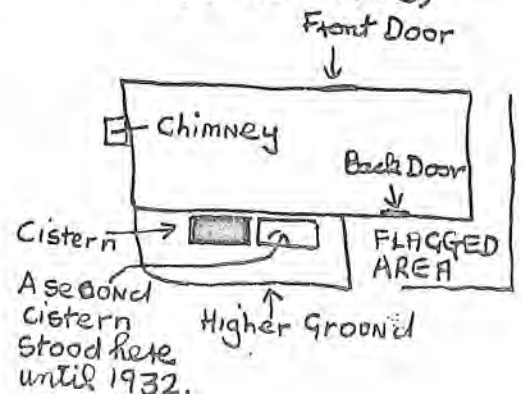 Front Door
Chimney
Back Door
Cistern
FLAGGED
AREA
A second
cistern
stood here
until 1932.
Higher Ground